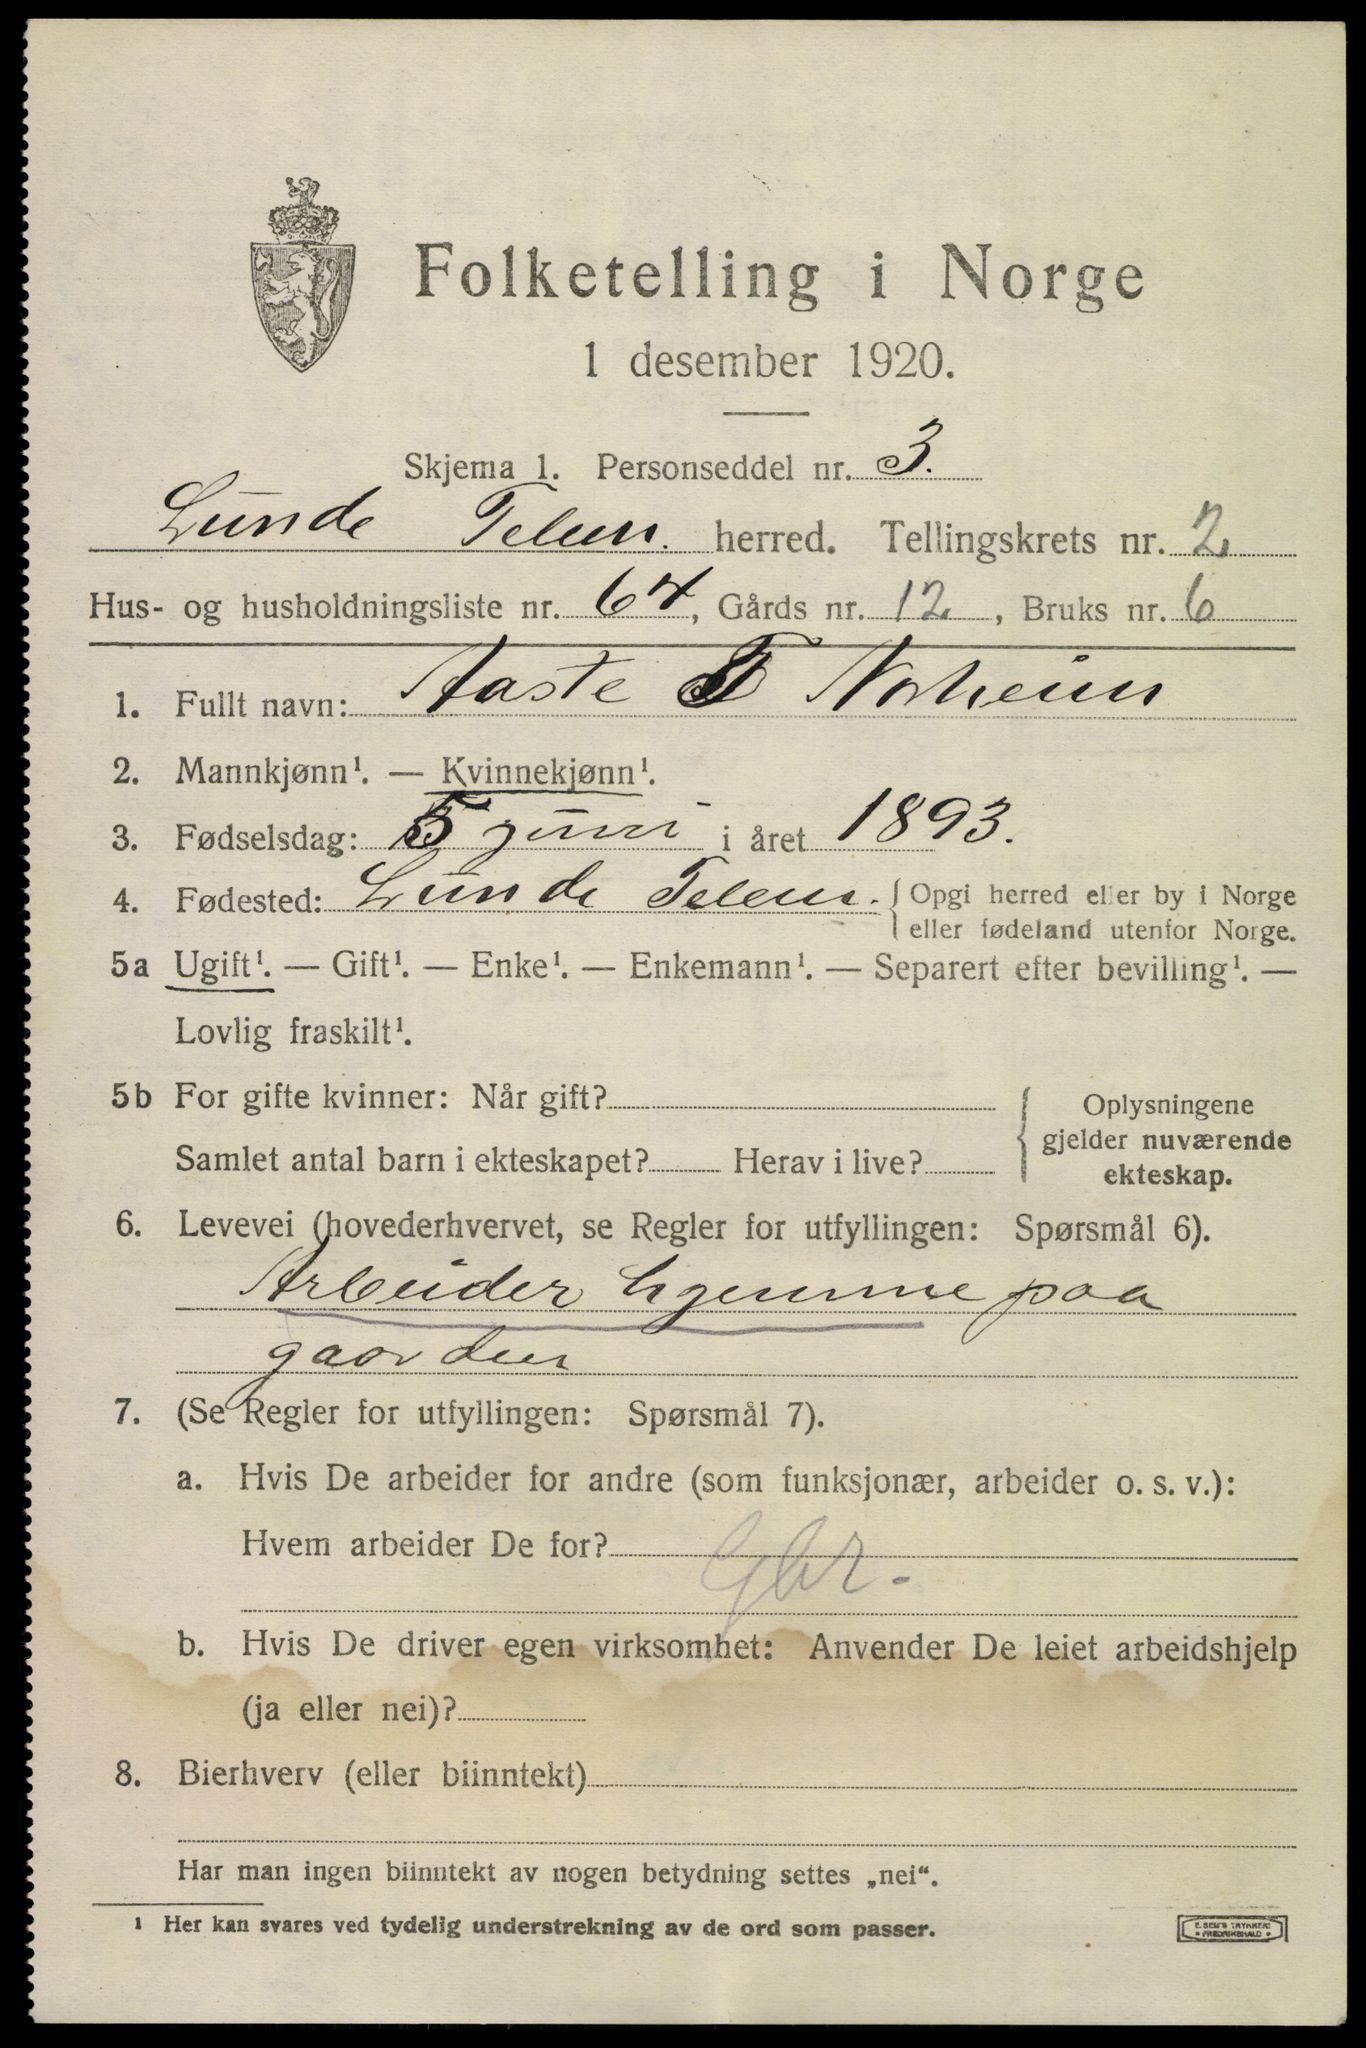 Folketelling i Norge
1 desember 1920.
Skjema 1. Personseddel nr. 3.
Lunde Telem. herred. Tellingskrets nr. 2
Hus- og husholdningsliste nr. 64, Gårds nr. 12, Bruks nr. 6
1. Fullt navn: Aaste T Norheim
2. Mannkjønn¹. — Kvinnekjønn¹.
3. Fødselsdag: 5 juni i året 1893.
4. Fødested: Lunde Telem. { Opgi herred eller by i Norge
eller fødeland utenfor Norge.
5a Ugift¹. — Gift¹. — Enke¹. — Enkemann¹. — Separert efter bevilling¹. —
Lovlig fraskilt¹.
5b For gifte kvinner: Når gift?
Samlet antal barn i ekteskapet? Herav i live?
Oplysningene
gjelder nuværende
ekteskap.
6. Levevei (hovederhvervet, se Regler for utfyllingen: Spørsmål 6).
Arbeider hjemme paa
gaarden
7. (Se Regler for utfyllingen: Spørsmål 7).
a. Hvis De arbeider for andre (som funksjonær, arbeider o. s. v.):
Hvem arbeider De for?
Gbr.
b. Hvis De driver egen virksomhet: Anvender De leiet arbeidshjelp
(ja eller nei)?
8. Bierhverv (eller biinntekt)
Har man ingen biinntekt av nogen betydning settes „nei“.
¹ Her kan svares ved tydelig understrekning av de ord som passer.
E. SEM'S TRYKKERI
• FREDRIKSHALD •